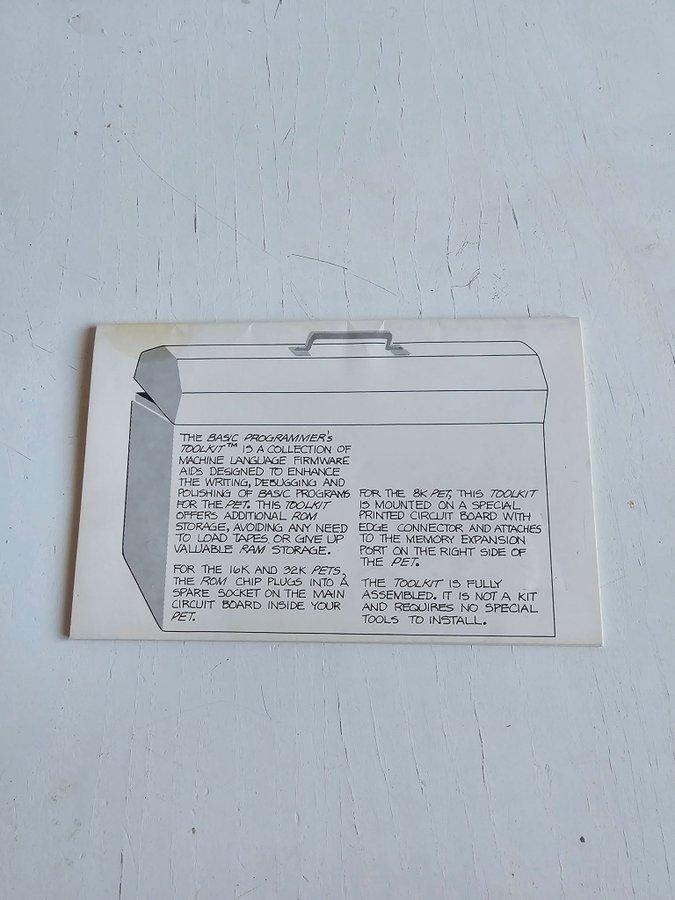 THE BASIC PROGRAMMER'S
TOOLKIT™ IS A COLLECTION OF
MACHINE LANGUAGE FIRMWARE
AIDS DESIGNED TO ENHANCE
THE WRITING, DEBUGGING AND
POLISHING OF BASIC PROGRAMS
FOR THE PET. THIS TOOLKIT
OFFERS ADDITIONAL ROM
STORAGE, AVOIDING ANY NEED
TO LOAD TAPES OR GIVE UP
VALUABLE RAM STORAGE.
FOR THE 16K AND 32K PETS,
THE ROM CHIP PLUGS INTO A
SPARE SOCKET ON THE MAIN
CIRCUIT BOARD INSIDE YOUR
PET.
FOR THE 8K PET, THIS TOOLKIT
IS MOUNTED ON A SPECIAL
PRINTED CIRCUIT BOARD WITH
EDGE CONNECTOR AND ATTACHES
TO THE MEMORY EXPANSION
PORT ON THE RIGHT SIDE OF
THE PET.
THE TOOLKIT IS FULLY
ASSEMBLED. IT IS NOT A KIT
AND REQUIRES NO SPECIAL
TOOLS TO INSTALL.